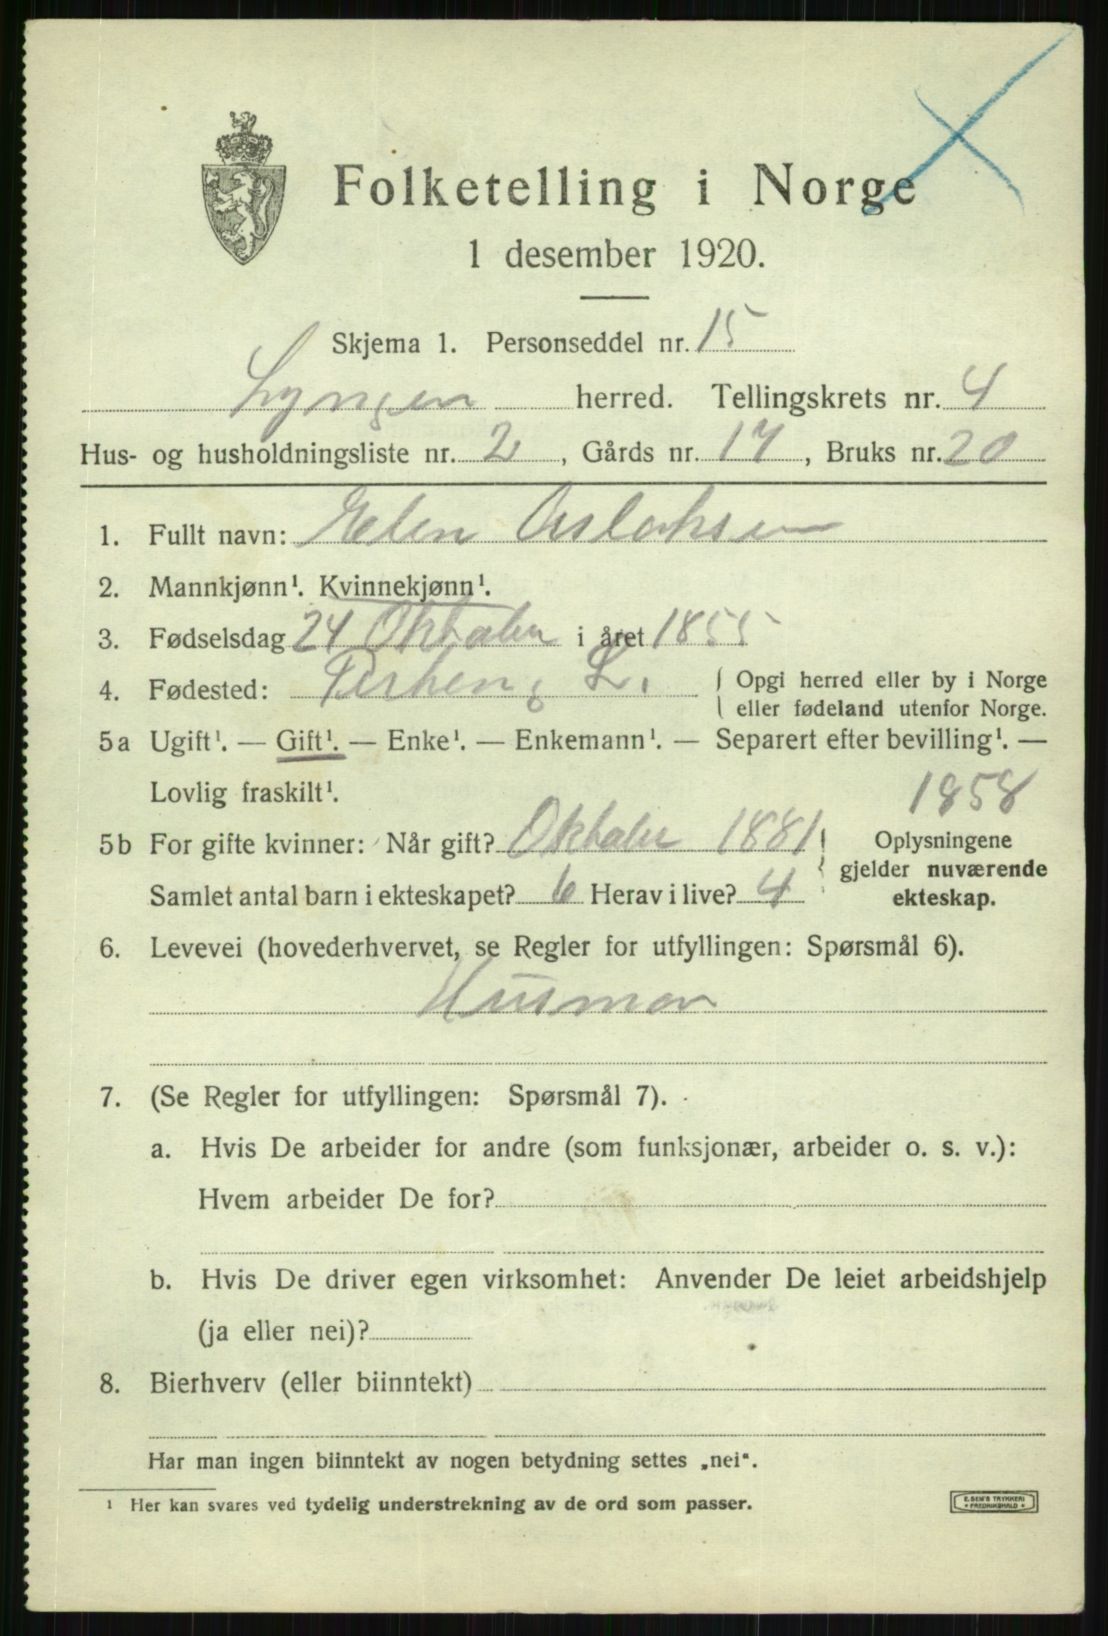 Folketelling i Norge
1 desember 1920.
Skjema 1. Personseddel nr. 15
Lyngen herred. Tellingskrets nr. 4
Hus- og husholdningsliste nr. 2, Gårds nr. 17, Bruks nr. 20
1. Fullt navn: Elen Aslaksen
2. Mannkjønn¹. Kvinnekjønn¹.
3. Fødselsdag 24 Oktober i året 1855
4. Fødested: L. Opgi herred eller by i Norge
eller fødeland utenfor Norge.
5a Ugift¹. — Gift¹. — Enke¹. — Enkemann¹. — Separert efter bevilling¹. —
Lovlig fraskilt¹.
1858
5b For gifte kvinner: Når gift? Oktober 1881 Oplysningene
gjelder nuværende
Samlet antal barn i ekteskapet? 6 Herav i live? 4 ekteskap.
6. Levevei (hovederhvervet, se Regler for utfyllingen: Spørsmål 6).
Husmor
7. (Se Regler for utfyllingen: Spørsmål 7).
a. Hvis De arbeider for andre (som funksjonær, arbeider o. s. v.):
Hvem arbeider De for?
b. Hvis De driver egen virksomhet: Anvender De leiet arbeidshjelp
(ja eller nei)?
8. Bierhverv (eller biinntekt)
Har man ingen biinntekt av nogen betydning settes „nei“.
¹ Her kan svares ved tydelig understrekning av de ord som passer.
E. SEM'S TRYKKERI
• FREDRIKSHALD •